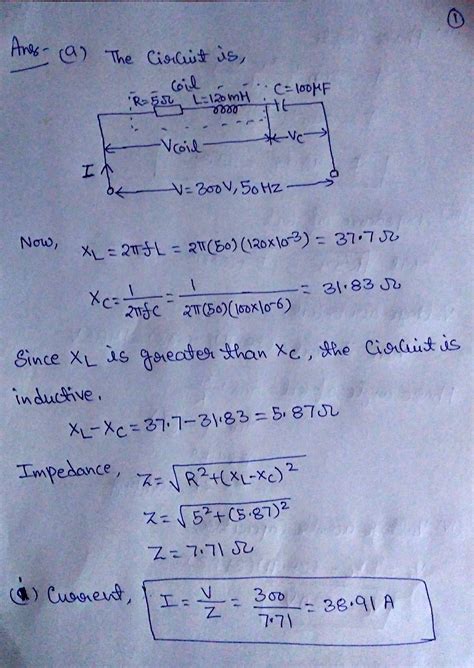 ①
Ans- (a) The Circuit is,
Coil
R=5Ω L=120mH C=100μF
Vcoil Vc
I
V=300V, 50HZ
Now, XL = 2πfL = 2π(50)(120×10-3) = 37.7Ω
XC = 1/2πfC = 1/2π(50)(100×10-6) = 31.83 Ω
Since XL is greater than XC, the Circuit is
inductive.
XL-XC = 37.7-31.83 = 5.87Ω
Impedance, Z = √R²+(XL-XC)²
Z = √5²+(5.87)²
Z = 7.71 Ω
(i) Current, I = V/Z = 300/7.71 = 38.91 A